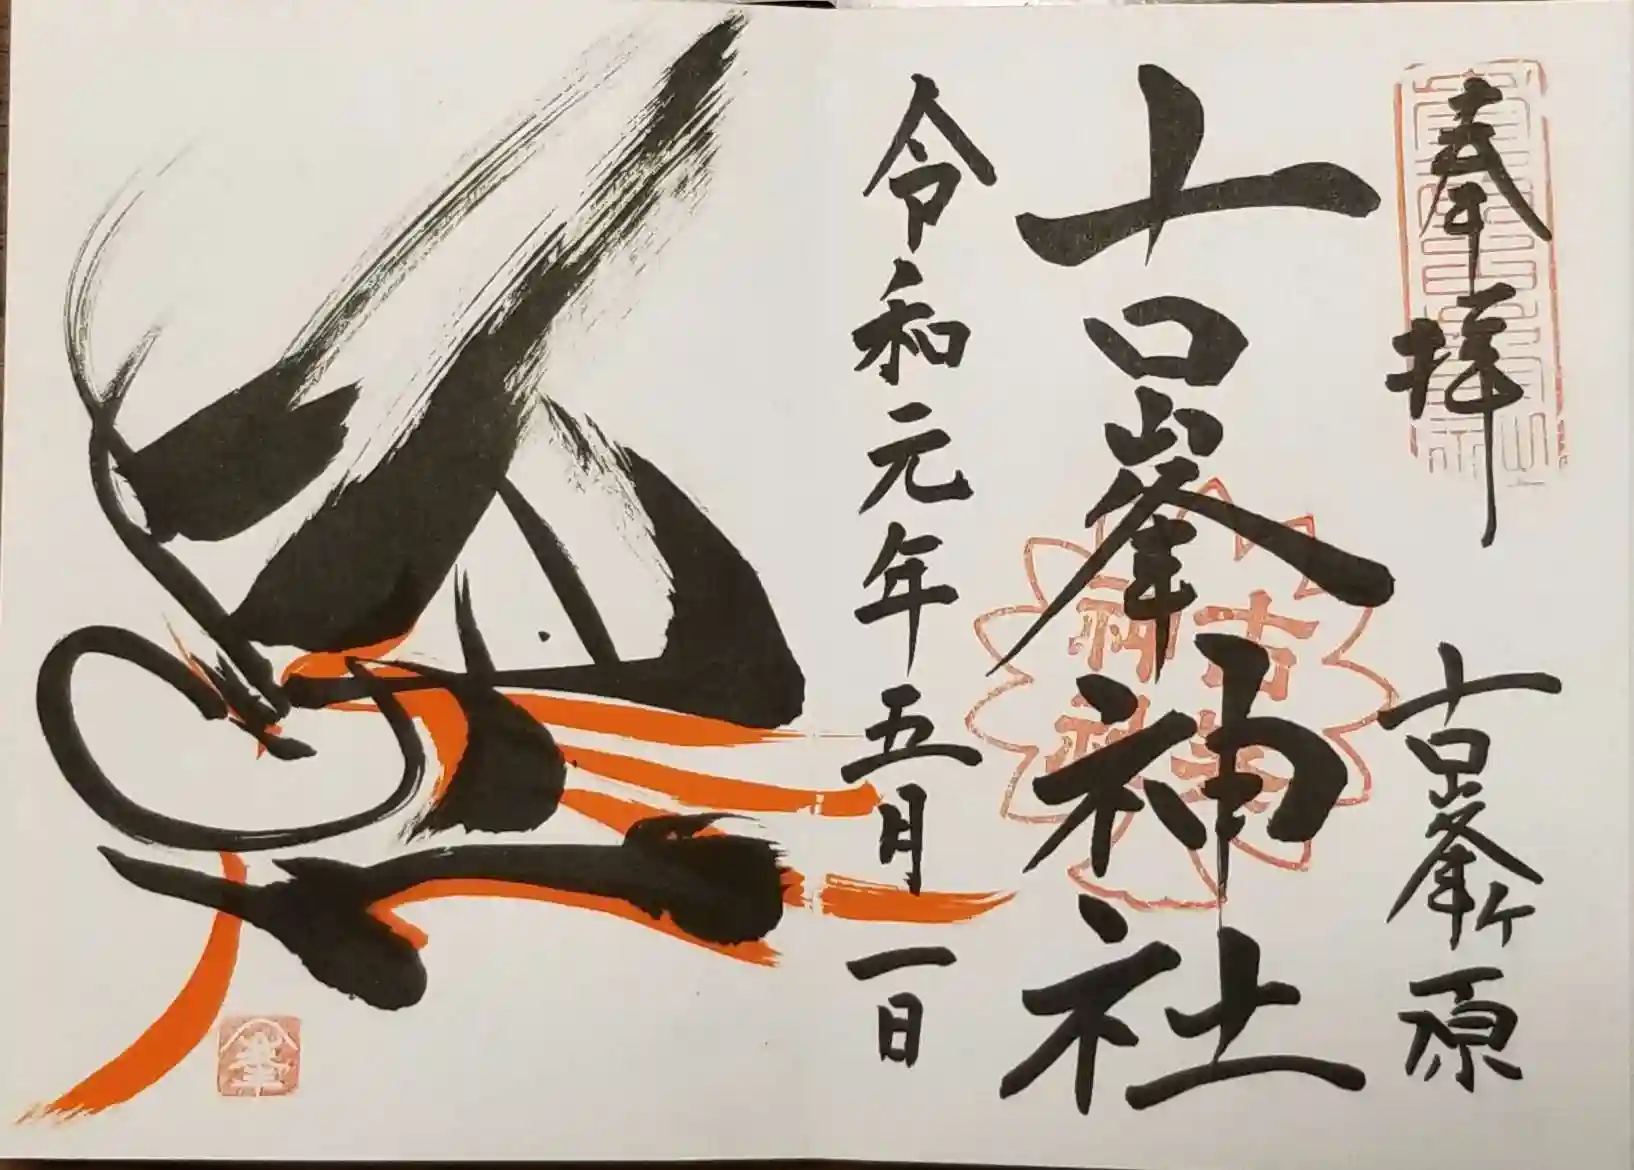 奉拝
古峯ヶ原
古峯神社
令和元年五月一日
古峯
神社
峯